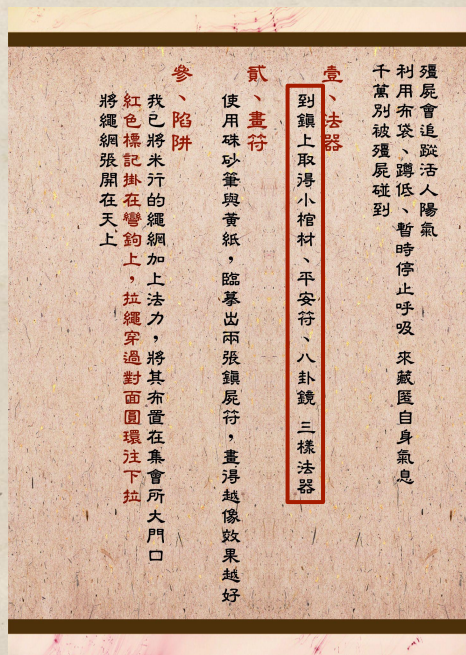 殭屍會追蹤活人陽氣
利用布袋、蹲低、暫時停止呼吸 來藏匿自身氣息
千萬別被殭屍碰到
壹、法器
到鎮上取得小棺材、平安符、八卦鏡 三樣法器
貳、畫符
使用硃砂筆與黃紙,臨摹出兩張鎮屍符,畫得越像效果越好
參、陷阱
我已將米行的繩網加上法力,將其布置在集會所大門口
紅色標記掛在彎鉤上,拉繩穿過對面圓環往下拉
將繩網張開在天上